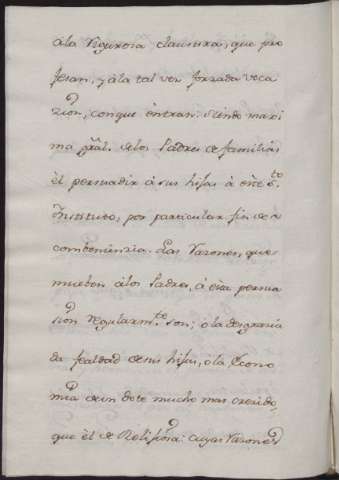 ála Rigurosa clausura, que pro
fesan, y àla tal vez forzada voca
zion, conque èntran: Siendo maxi
ma gràl. delos Padres de familias
èl persuadir á sus hijas á èste Sto.
Ynstituto, por particular fin de
combeniènzia. Las Razones, que
mueben álos Padres, á èsta persua
sion regularmte. son; ó la desgracia
da fealdad desus hijas, ó la Econo
mia deun dote mucho mas crecido,
que èl de Relijiosa: cuyas Razones